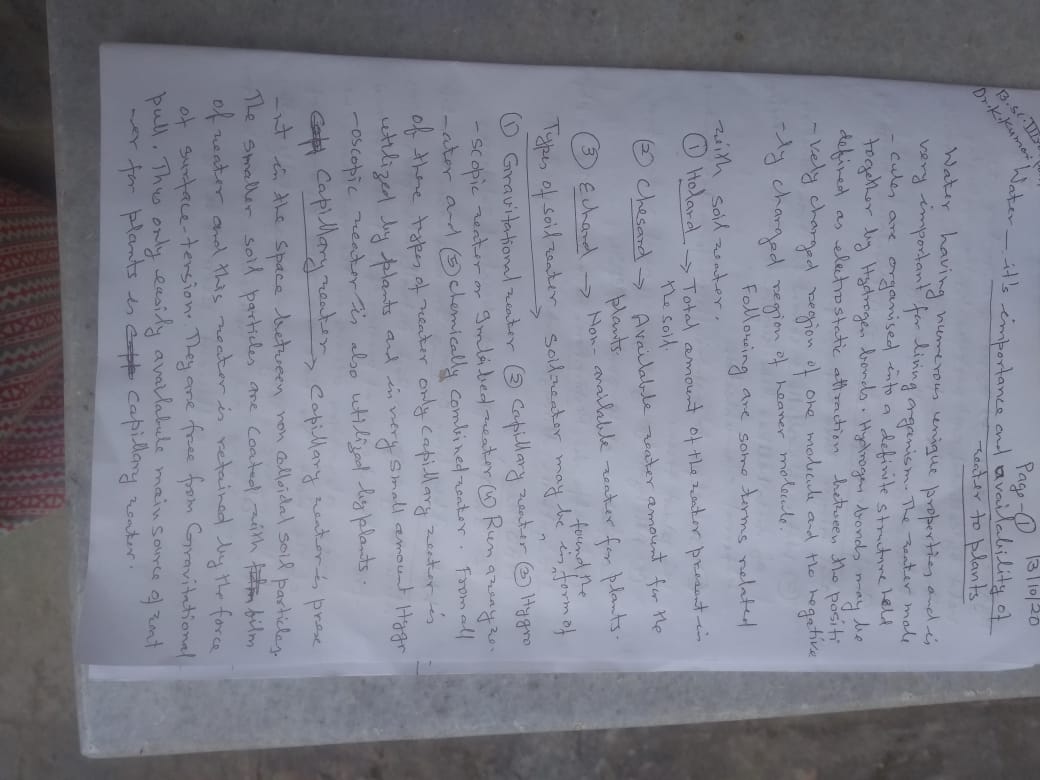 Page-① 13/10/20
B.sc.II
Dr. K. Kumari
Water - it's importance and availability of
water to plants
Water having numerous unique properties and is
very important for living organism. The water mole
-cules are organised into a definite structure held
together by Hydrogen bonds. Hydrogen bonds may be
defined as electrostatic attraction between the positi
-vely charged region of one molecule and the negative
-ly charged region of nearer molecule.
Following are some terms related
with soil water.
① Holard → Total amount of the water present in
the soil.
② Chesard → Available water amount for the
plants.
③ Echard → Non-available water for plants.
Types of soil water → Soil water may be found in the form of
① Gravitational water ② Capillary water ③ Hygro
-scopic water or Imbibed water ④ Run away wa
-ater and ⑤ chemically combined water. From all
of these types of water only capillary water is
utilized by plants and in very small amount Hygr
-oscopic water is also utilized by plants.
Capillary water → Capillary water is prese
-nt in the space between non colloidal soil particles.
The smaller soil particles are coated with film
of water and this water is retained by the force
of surface-tension. They are free from Gravitational
pull. This only easily availabule main source of wat
-er for plants is capillary water.